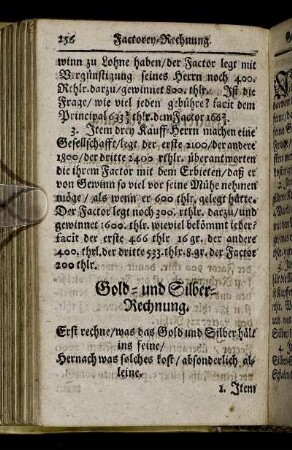 256 Factorey-Rechnung.
winn zu Lohne haben/der Factor legt mit
Vergünstigung seines Herrn noch 400.
Rthlr. darzu/ gewinnet 800. thlr. Ist die
Frage/ wie viel jeden gebühre? facit dem
Principal 633⅓ thlr. dem Factor 166⅔.
3. Item drey Kauff-Herrn machen eine
Gesellschafft/ legt der erste 2100/ der andere
1800/ der dritte 2400 rthlr. überantworten
die ihrem Factor mit dem Erbieten/ daß er
von Gewinn so viel vor seine Mühe nehmen
möge/ als wenn er 600 thlr. gelegt hätte.
Der Factor legt noch 300. rthlr. darzu/ und
gewinnet 1600. thlr. wieviel bekömmt ieder?
facit der erste 466 thlr 16 gr. der andere
400. thrl. der dritte 533. thlr. 8. gr. der Factor
200 thlr.
Gold- und Silber-
Rechnung.
Erst rechne/ was das Gold und Silber hält
ins feine/
Hernach was solches kost/ absonderlich al-
leine.
1. Item